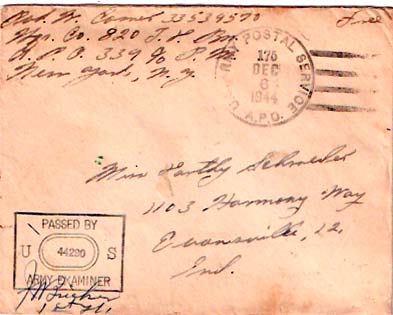 W. Comer 33539570
Free
Co. 820 T. D. Bn.
A. P. O. 339 % P. M.
New York, N.Y.
U.S. ARMY POSTAL SERVICE
175
DEC
6
1944
A.P.O.
Miss Schroeder
1103 Harmony Way
Evansville, 12,
Ind.
PASSED BY
U 44280 S
ARMY EXAMINER
1st Lt.